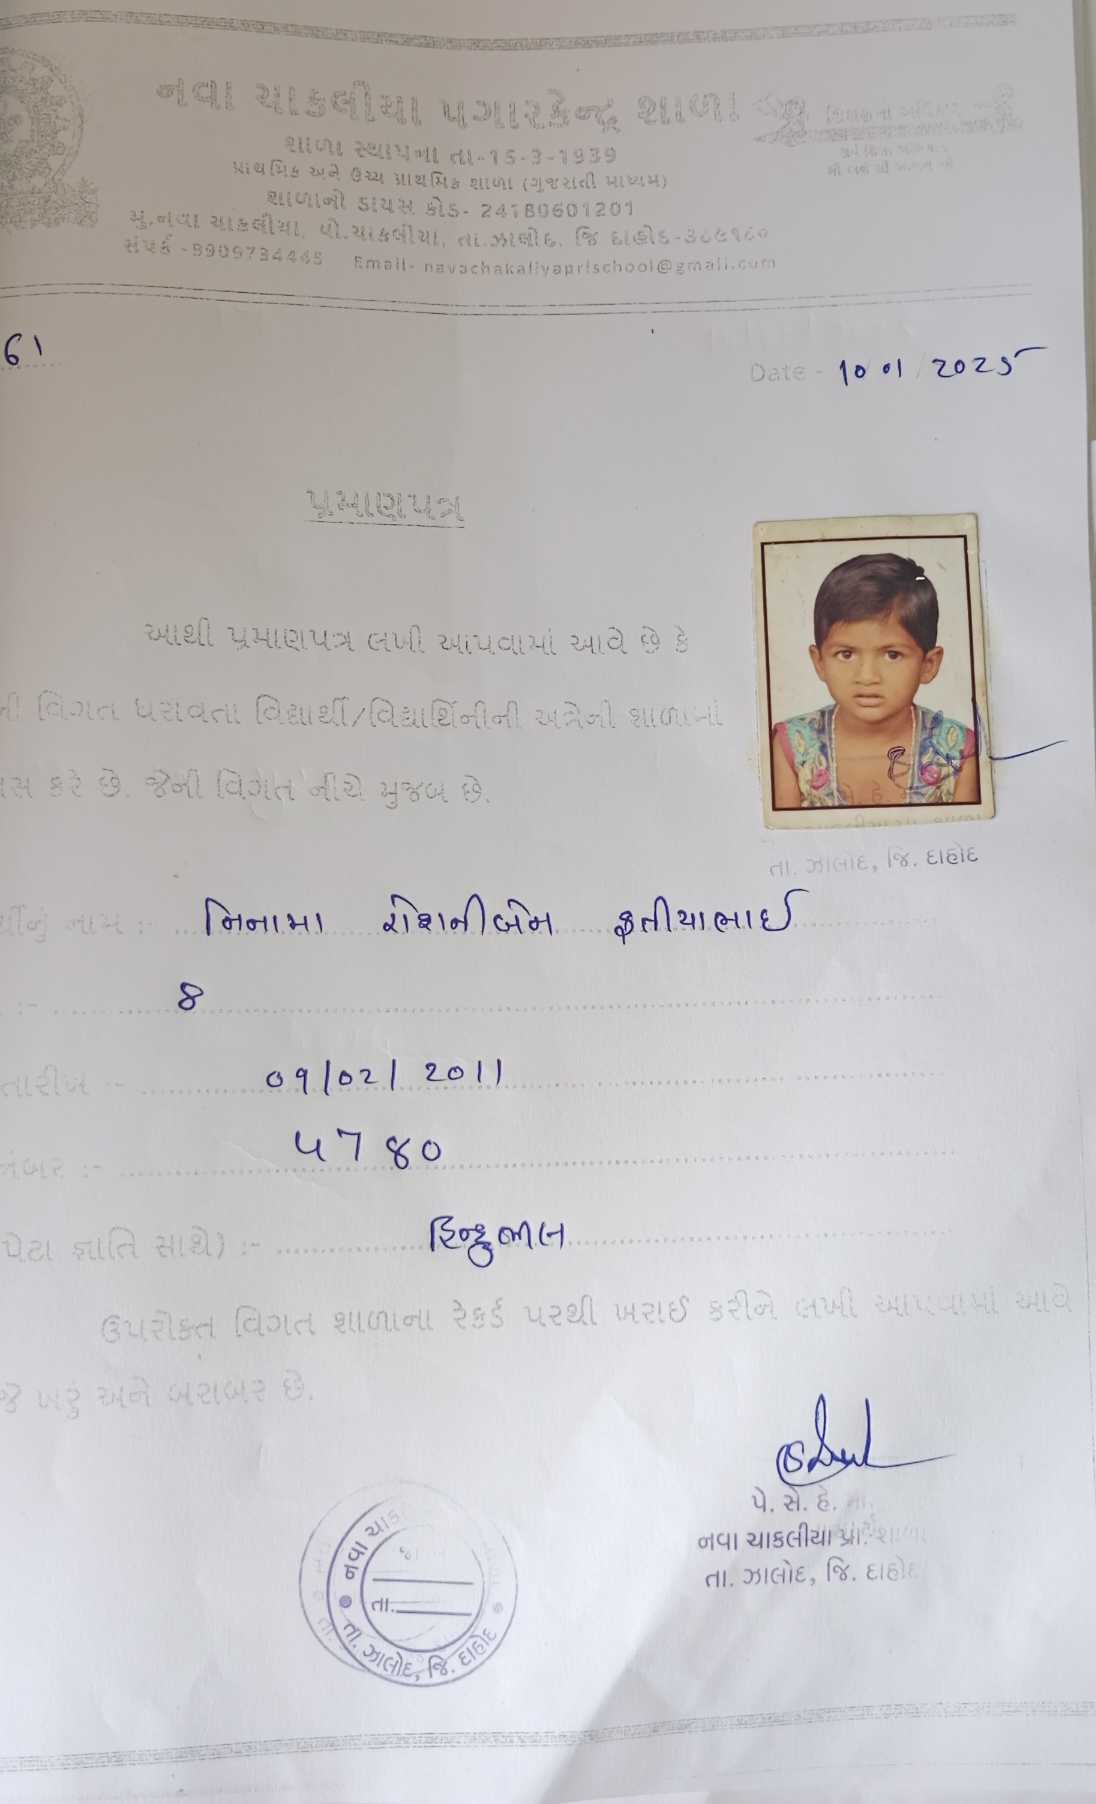 નવા ચાકલીયા પગારકેન્દ્ર શાળા
શાળા સ્થાપના તા-15-3-1939
પ્રાથમિક અને ઉચ્ચ પ્રાથમિક શાળા (ગુજરાતી માધ્યમ)
શાળાનો ડાયસ કોડ- 24180601201
મુ.નવા ચાકલીયા, પો.ચાકલીયા, તા.ઝાલોદ, જિ દાહોદ-૩૮૯૧૮૦
સંપર્ક -9909734445 Email- navachakaliyaprischool@gmail.com
61
Date - 10 01 / 2025
પ્રમાણપત્ર
આથી પ્રમાણપત્ર લખી આપવામાં આવે છે કે
ની વિગત ધરાવતા વિદ્યાર્થી/વિદ્યાર્થિનીની અત્રેની શાળામાં
સ કરે છે. જેની વિગત નીચે મુજબ છે.
તા. ઝાલોદ, જિ. દાહોદ
ર્થીનું નામ :- મિનામા રોશનીબેન ફતીયાભાઈ
:- 8
તારીખ :- 09/02/2011
નંબર :- ૫780
પેટા જ્ઞાતિ સાથે) :- હિન્દુ ભીલ
ઉપરોક્ત વિગત શાળાના રેકર્ડ પરથી ખરાઈ કરીને લખી આપવામાં આવે
જે ખરું અને બરાબર છે.
પે. સે. હે. મા.
નવા ચાકલીયા પ્રા. શાળા
તા. ઝાલોદ, જિ. દાહોદ
નવા ચાક
તા.
તા. ઝાલોદ, જિ. દાહોદ